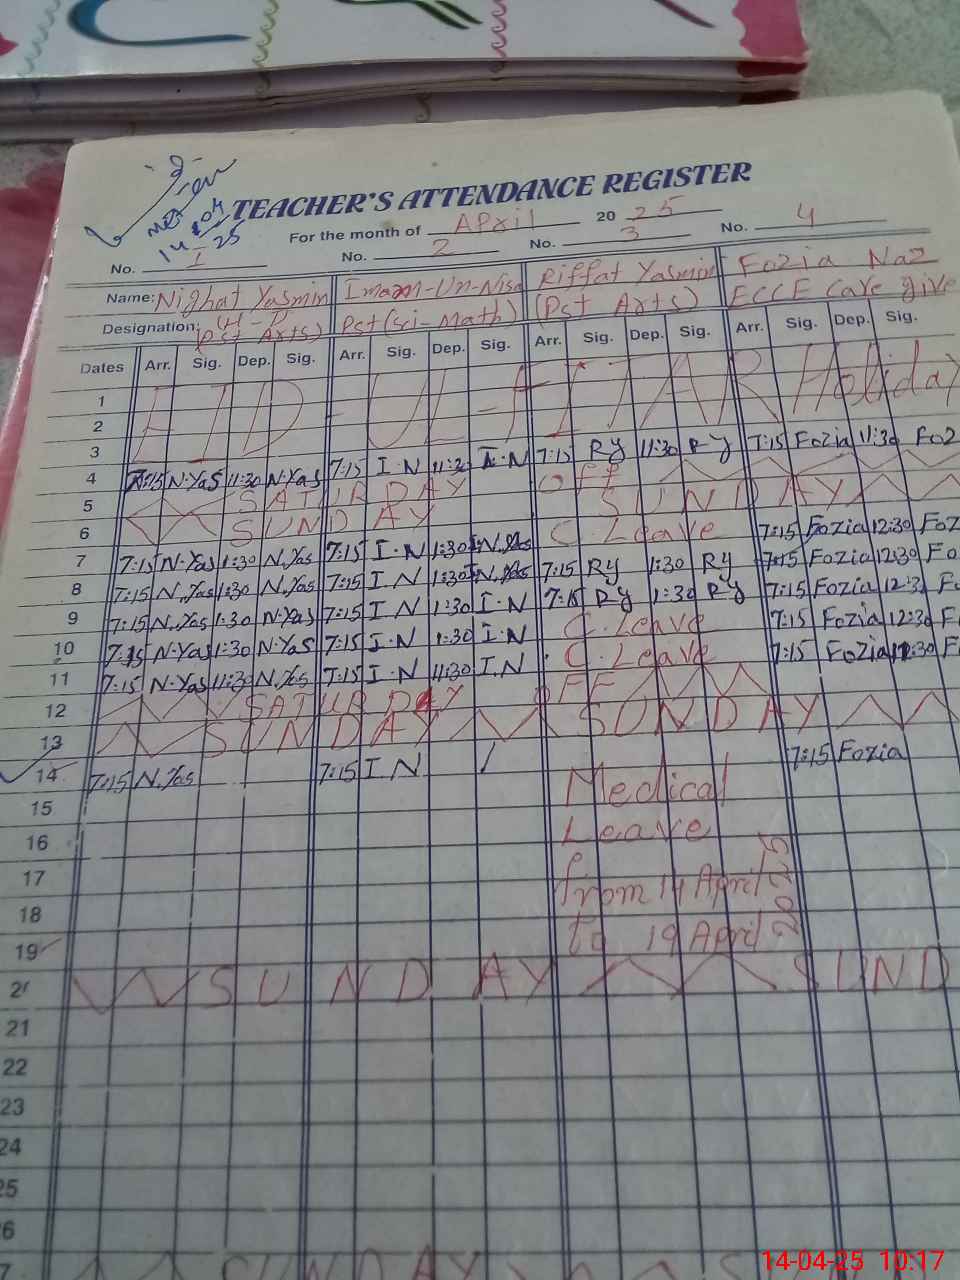 14.04
25
TEACHER'S ATTENDANCE REGISTER
For the month of April 20 25
No. 1 No. 2 No. 3 No. 4
Name: Nighat Yasmin Imam-Un-Nisa Riffat Yasmin Fozia Naz
Designation: (Pst Arts) Pst (sci-Math) (Pst Arts) ECCE Care give
Dates Arr. Sig. Dep. Sig. Arr. Sig. Dep. Sig. Arr. Sig. Dep. Sig. Arr. Sig. Dep. Sig.
1
2
EID-UL-FITAR Holiday
3
4 7:15 N.Yas 11:30 N.Yas 7:15 I.N 11:30 I.N 7:15 Ry 11:30 Ry 7:15 Fozia 11:30 Foz
5 SATURDAY off
6 SUNDAY SUNDAY
7 7:15 N.Yas 1:30 N.Yas 7:15 I.N 1:30 I.N C.Leave 7:15 Fozia 12:30 Foz
8 7:15 N.Yas 1:30 N.Yas 7:15 I.N 1:30 I.N 7:15 Ry 1:30 Ry 7:15 Fozia 12:30 Fo
9 7:15 N.Yas 1:30 N.Yas 7:15 I.N 1:30 I.N 7:15 Ry 1:30 Ry 7:15 Fozia 12:30 Fo
10 7:15 N.Yas 1:30 N.Yas 7:15 I.N 1:30 I.N C.Leave 7:15 Fozia 12:30 F
11 7:15 N.Yas 11:30 N.Yas 7:15 I.N 11:30 I.N C.Leave 7:15 Fozia 11:30 F
12 SATURDAY OFF
13 SUNDAY SUNDAY
14 7:15 N.Yas 7:15 I.N Medical 7:15 Fozia
15
16 Leave
17
18 from 14 April 2025
19 to 19 April
2 SUNDAY SUND
21
22
23
24
25
6
7 SUNDAY S
14-04-25 10:17